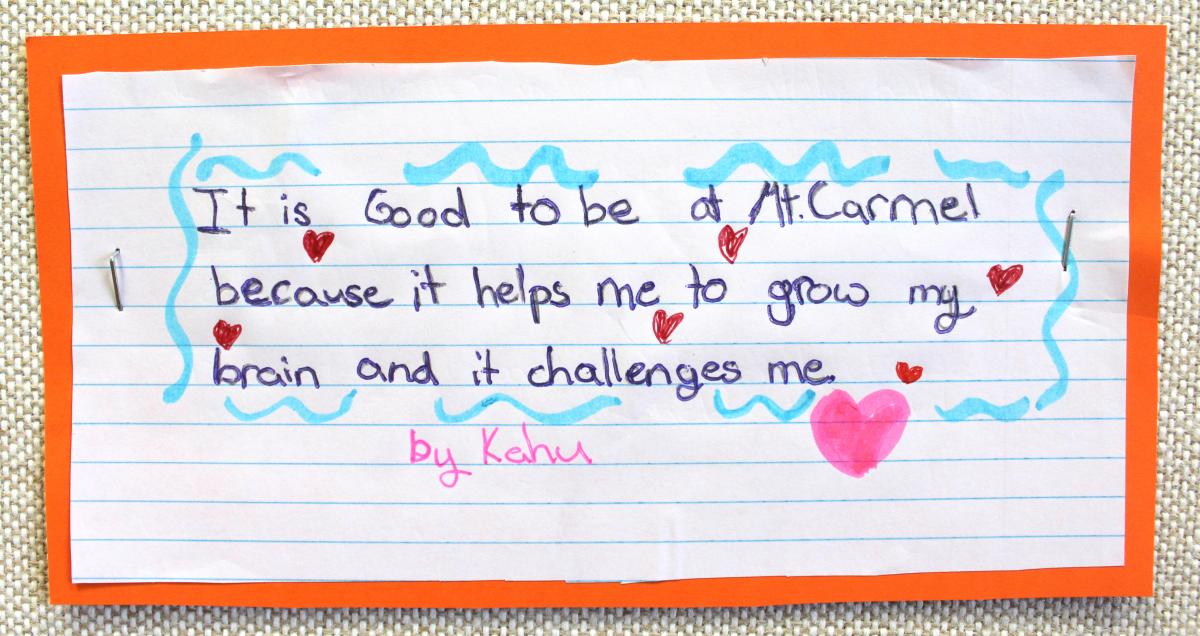 It is Good to be at Mt. Carmel
because it helps me to grow my
brain and it challenges me.
by Kahu